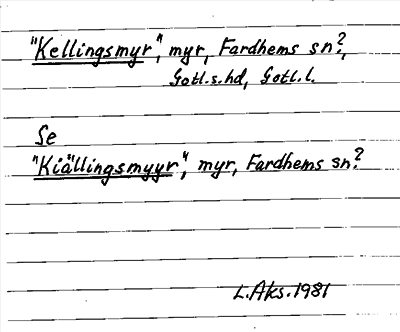 "Kellingsmyr", myr, Fardhems sn?,
Gotl.s.hd, Gotl.l.
Se
"Kiällingsmyyr", myr, Fardhems sn?
L.Aks.1981